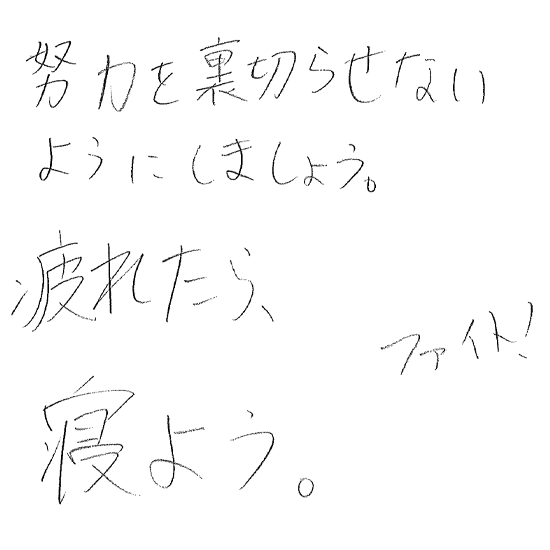 努力を裏切らせない
ようにしましょう。
疲れたら、
ファイト!
寝よう。